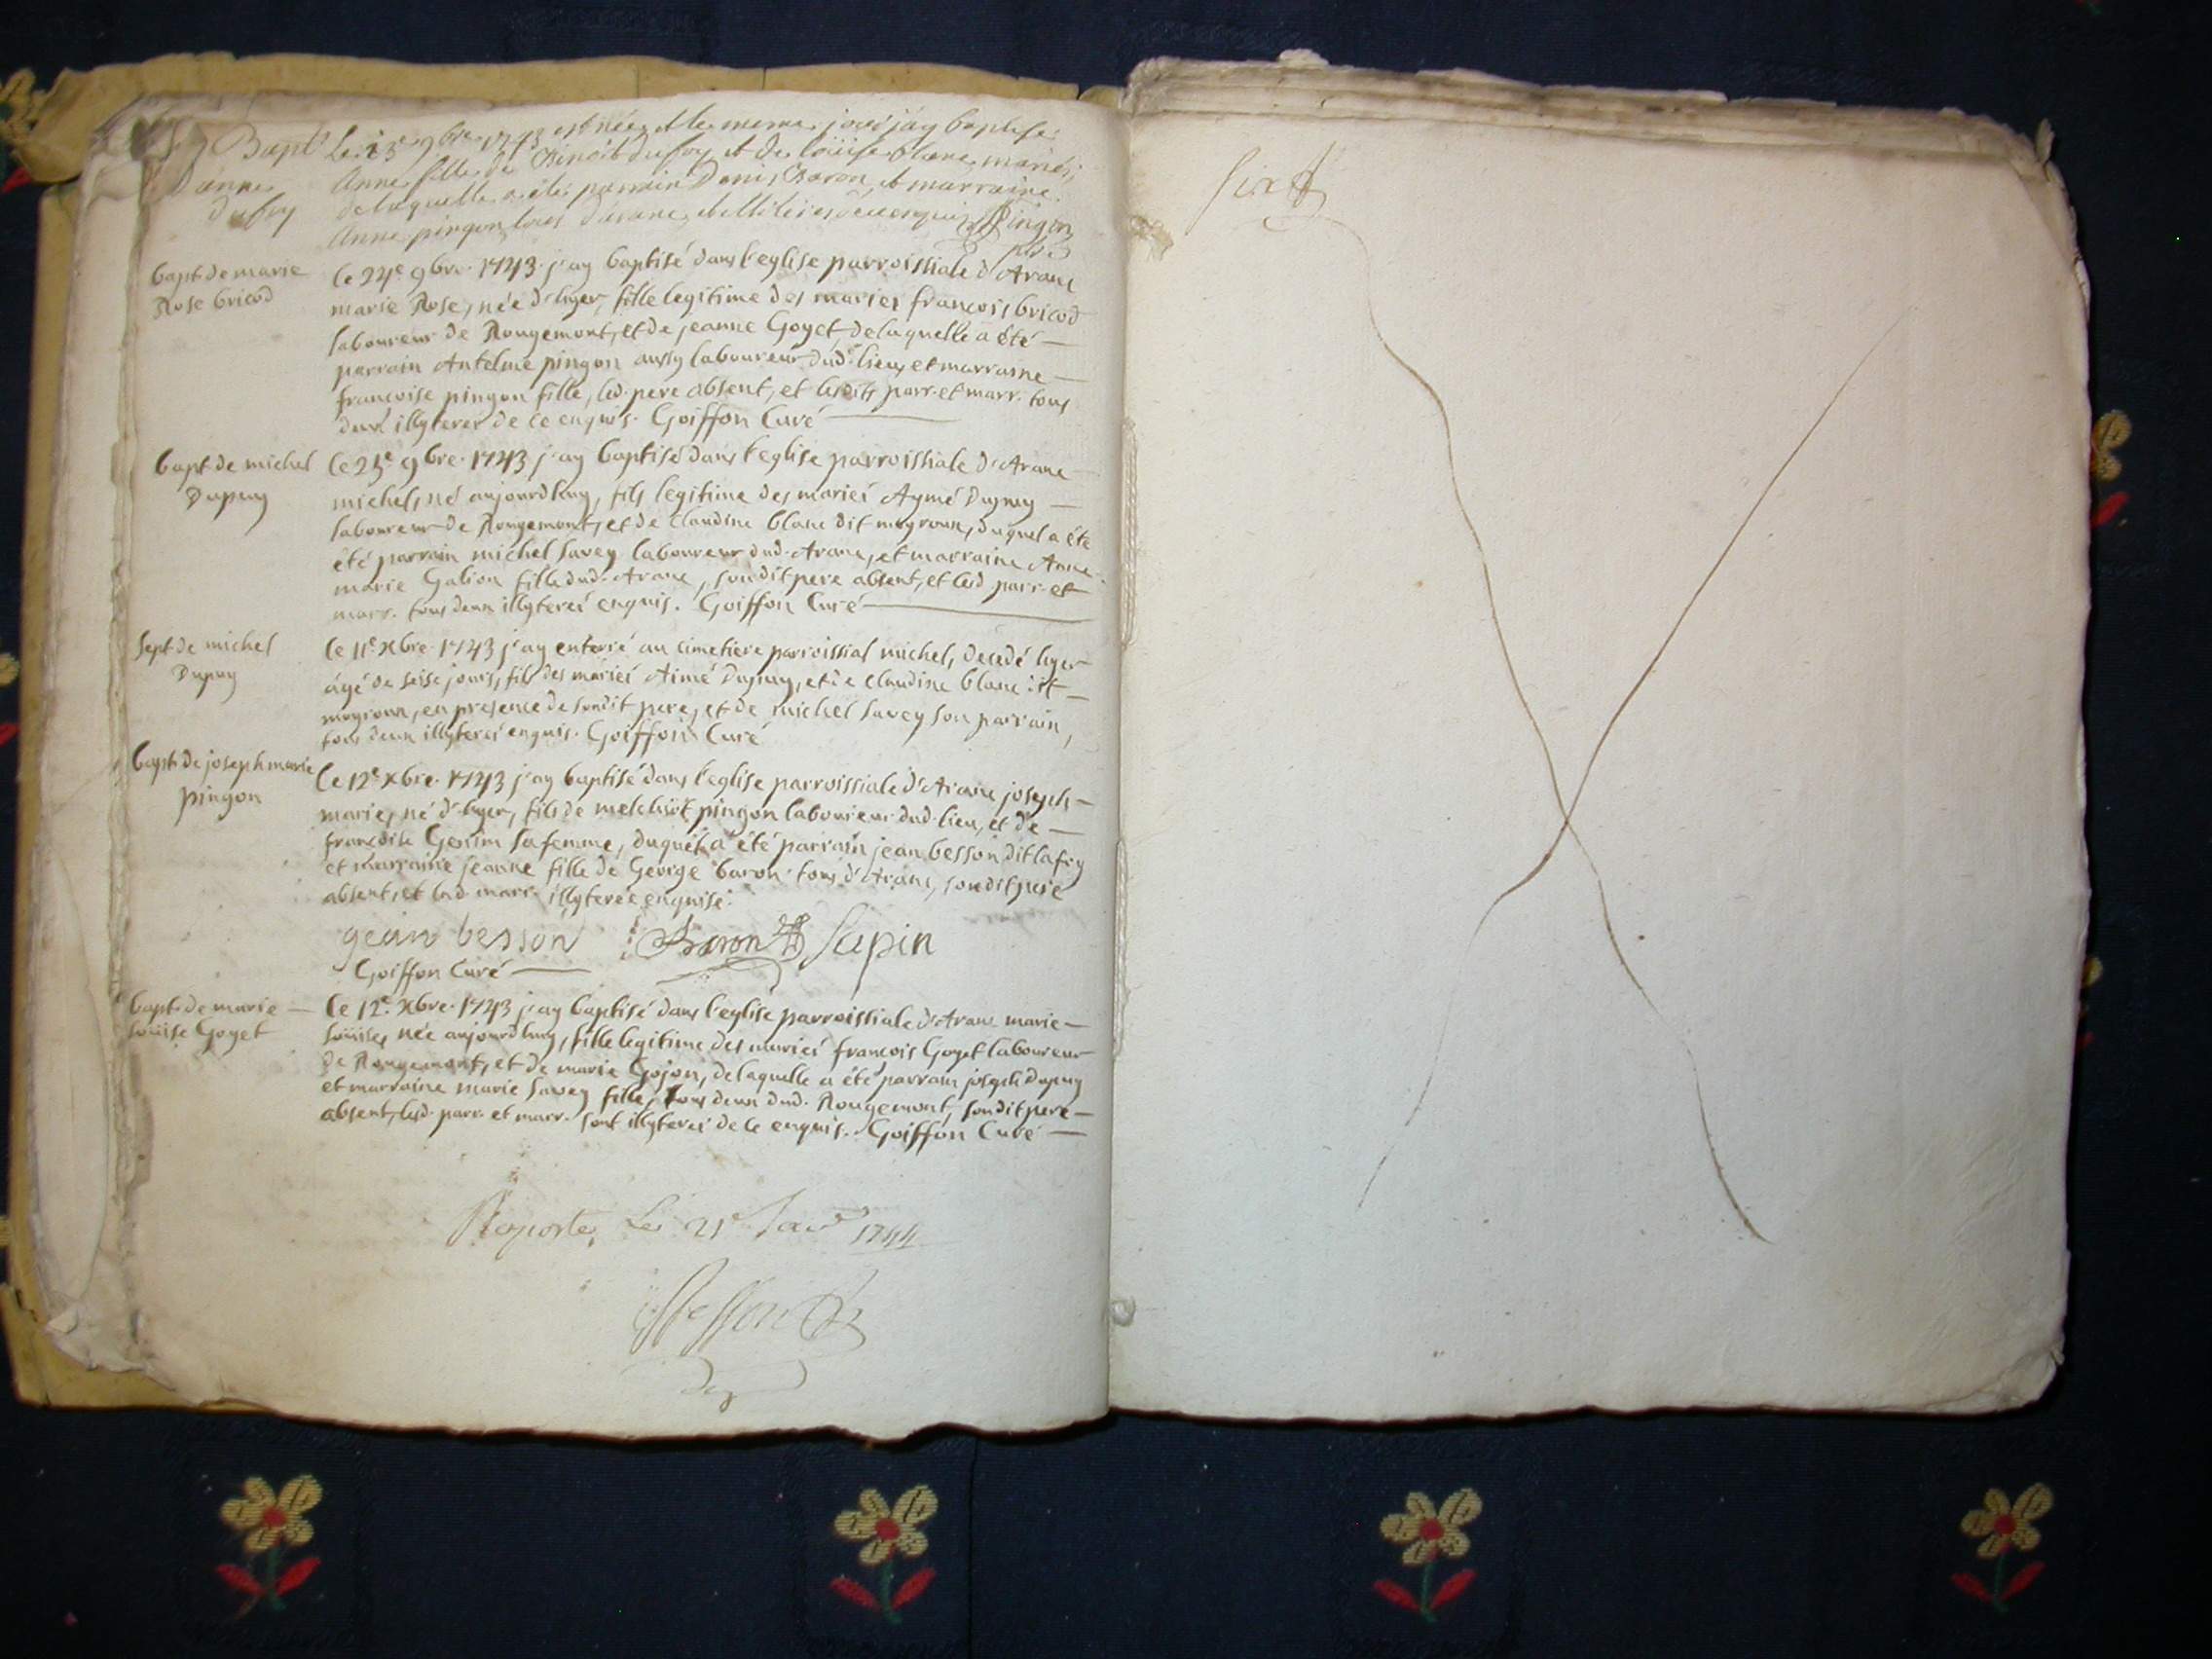 Bapt. Le 23e 9bre 1743 est née et le meme jour j'ay baptisé
D'anne Anne fille de Benoit dufoy et de Loüise blanc mariés,
dufoy de laquelle a été parrain Denis Baron, et marraine
Anne pingon tous d'aranc, et illiterés de ce enquis Pingon
bapt. de marie
Rose bricod
le 24e 9bre. 1743 j'ay baptisé dans l'eglise parroissiale d'Aranc
marie Rose, née d'hyer, fille legitime des mariés françois bricod
laboureur de Rougemont, et de jeanne Goyet, de laquelle a été —
parrain Antelme pingon aussy laboureur dud. lieu, et marraine —
françoise pingon fille, led. pere absent, et lesdits parr. et marr. tous
deux illyterés de ce enquis. Goiffon Curé —
bapt. de michel
Dupuy
le 25e 9bre. 1743 j'ay baptisé dans l'eglise parroissiale d'Aranc —
michel, né aujourdhuy, fils legitime des mariés Aymé Dupuy —
laboureur de Rougemont, et de Claudine blanc dit mogroux, duquel a été
été parrain michel savey laboureur dud. Aranc, et marraine Anne
marie Galion fille dud. Aranc, sondit pere absent, et lesd parr. et
marr. tous deux illyterés enquis. Goiffon Curé —
sept. de michel
Dupuy
le 11e Xbre. 1743 j'ay enterré au cimetiere parroissial michel, decedé hyer
âgé de seise jours, fils des mariés Aimé Dupuy, et de Claudine blanc dit —
mogroux, en presence de sondit pere, et de michel savey son parrain,
tous deux illyterés enquis. Goiffon Curé
bapt. de joseph marie
pingon
le 12e Xbre. 1743 j'ay baptisé dans l'eglise parroissiale d'Aranc joseph —
marie, né d'hyer, fils de melchiot pingon laboureur dud. lieu, et de —
françoise Genin sa femme, duquel a été parrain jean besson dit lafoy
et marraine jeanne fille de George baron tous d'Aranc, sondit pere
absent, et lad. marr. illyterée enquise.
gean besson Baron Sapin
Goiffon Curé —
bapt. de marie —
Loüise Goyet
le 12e Xbre. 1743 j'ay baptisé dans l'eglise parroissiale d'Aranc marie —
Loüise, née aujourdhuy, fille legitime des mariés françois Goyet laboureur
de Rougemont, et de marie Gojon, de laquelle a été parrain joseph Dupuy
et marraine marie savey fille, tous deux dud. Rougemont, sondit pere —
absent, lesd. parr. et marr. sont illyterés de ce enquis. Goiffon Curé —
Raporté Le 21e 1744